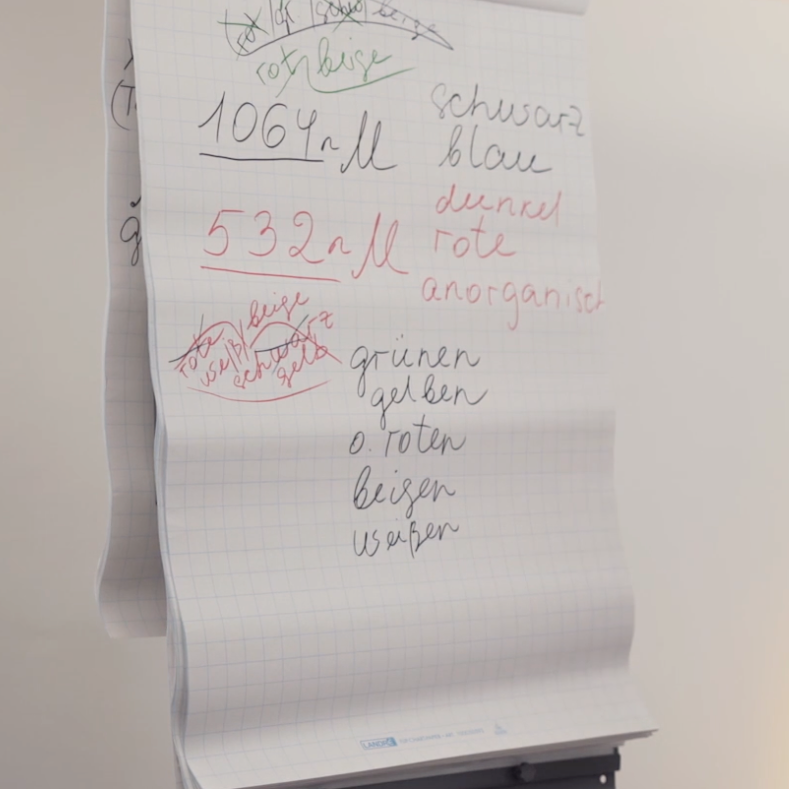 rot beige
1064nM
schwarz
blau
532nM
dunkel
rote
anorganisch
rote
weiß
beige
schwarz
gelb
grünen
gelben
o. roten
beigen
weißen